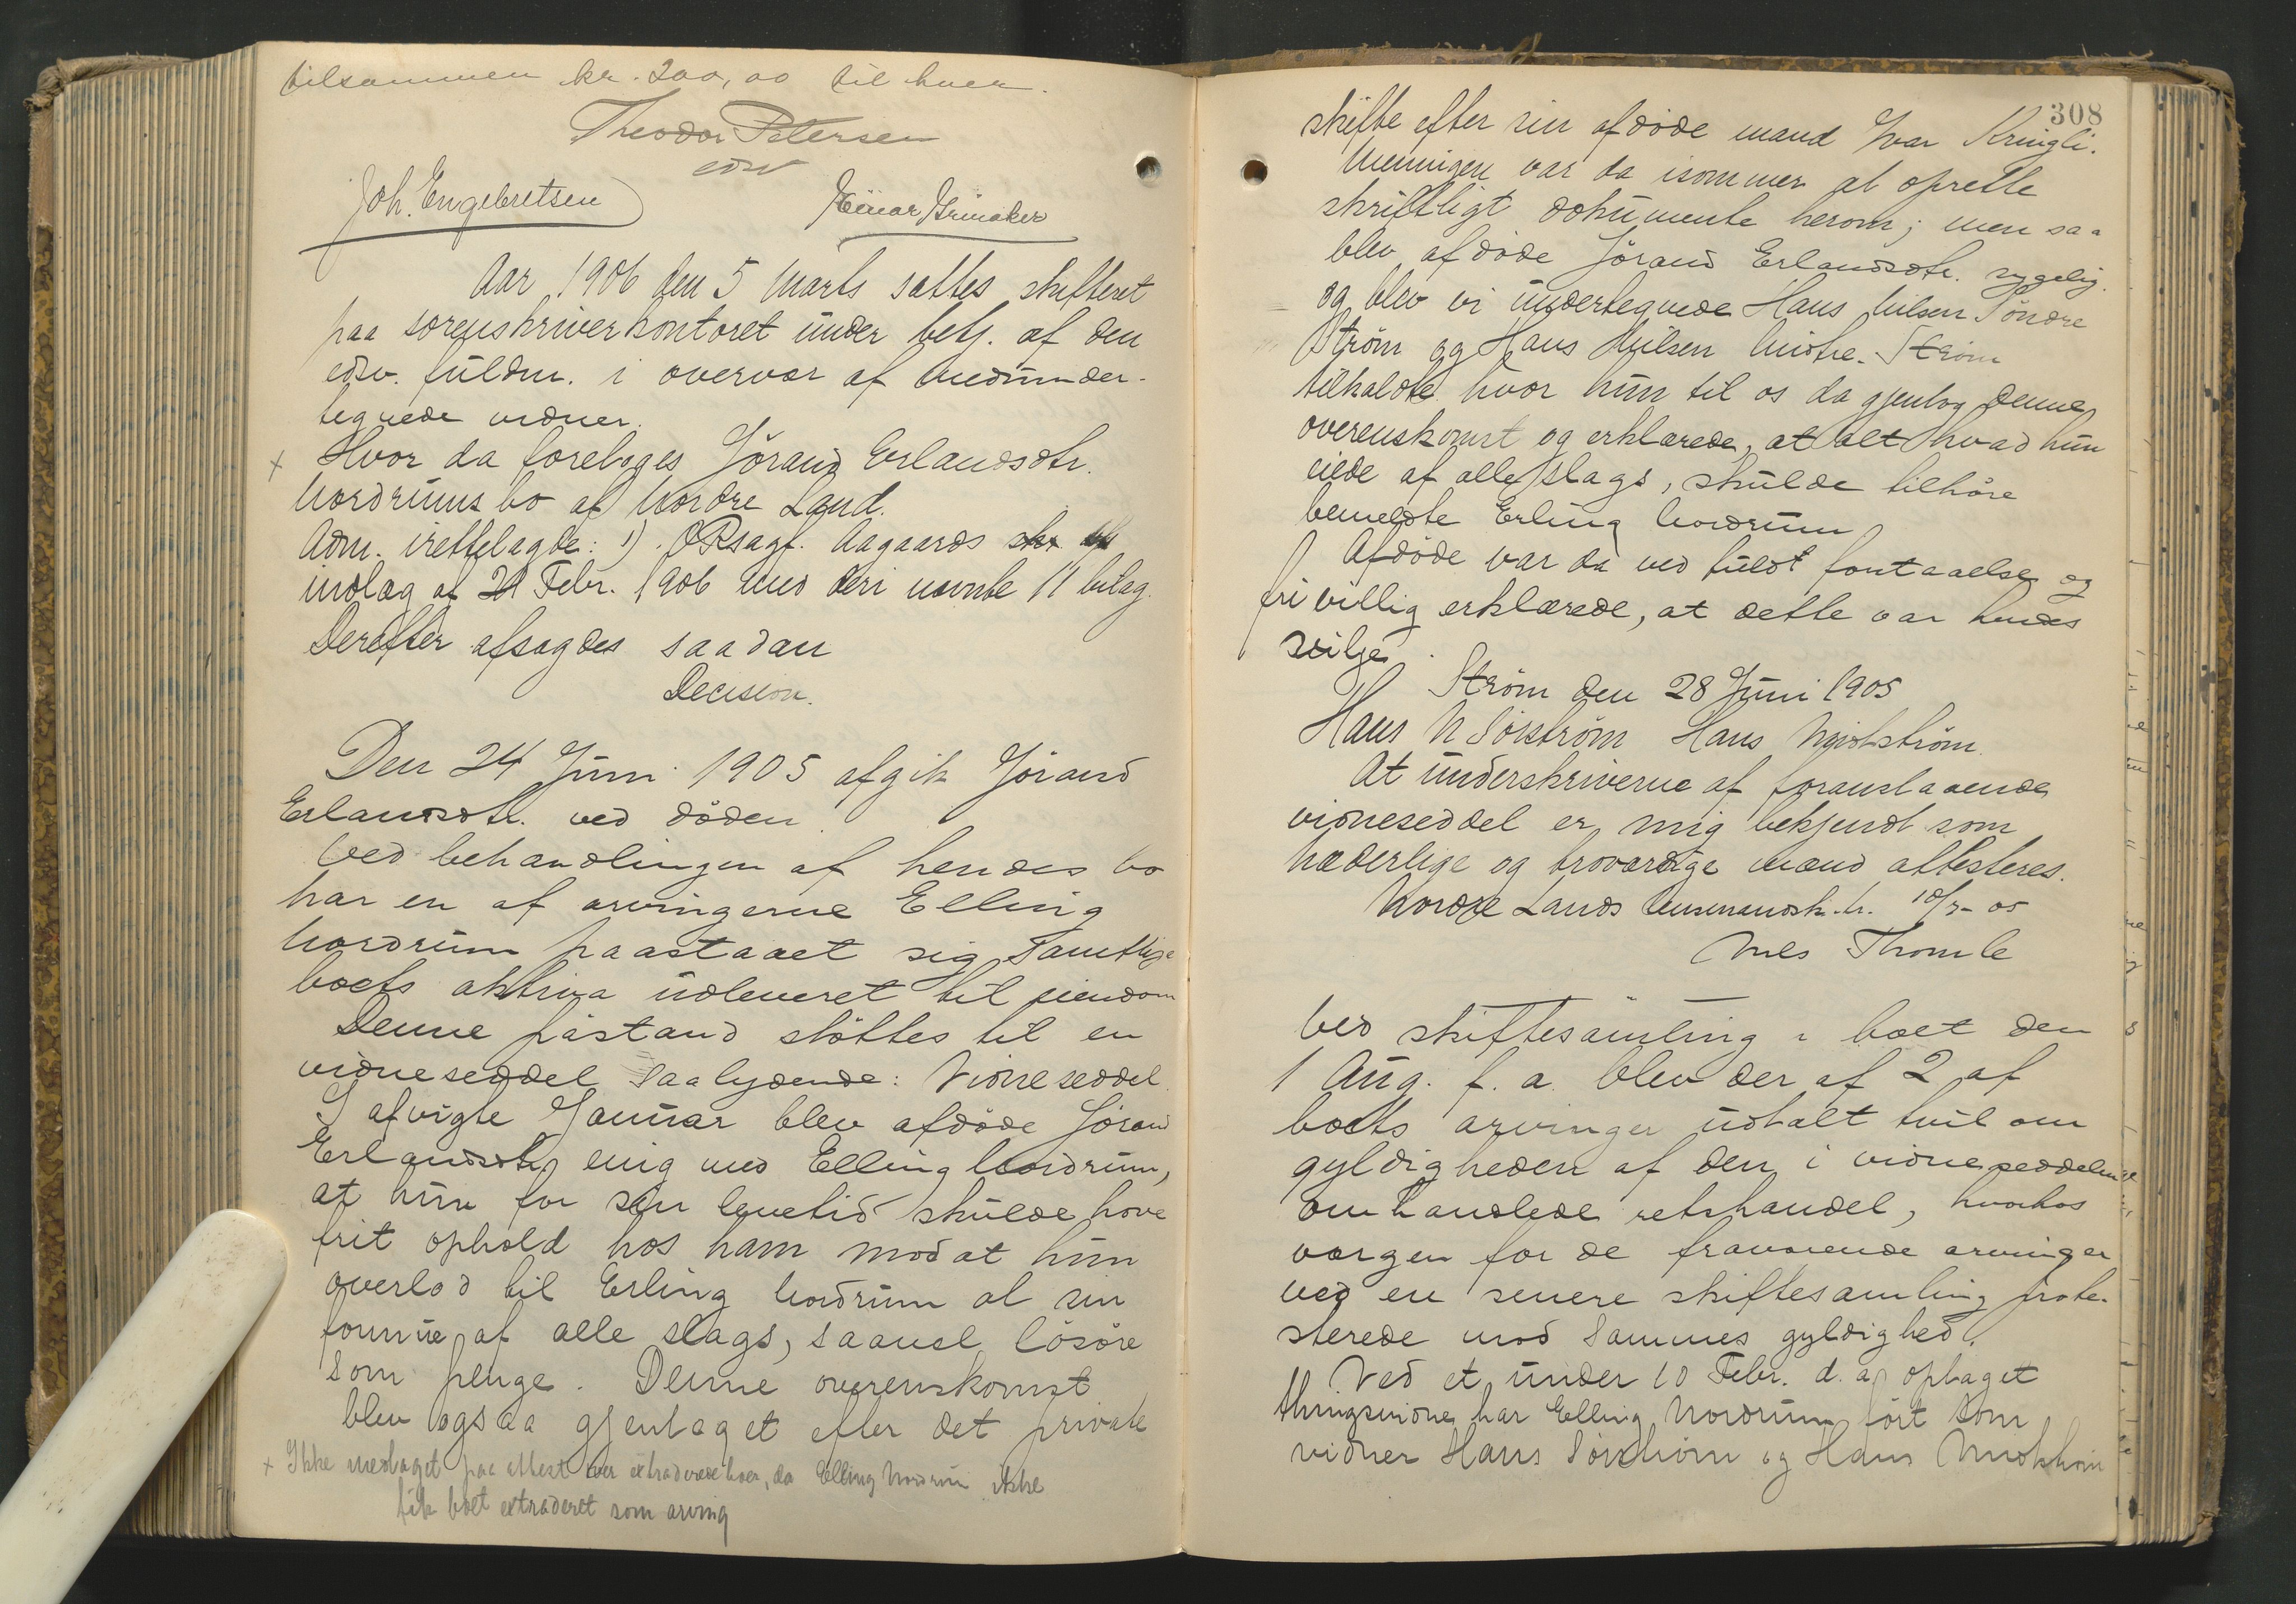 tilsammen kr. 200,00 til hver.
Theodor Petersen
edsv
Joh. Engebretsen Einar Grinaker
Aar 1906 den 5 Marts sattes skifteret
paa sorenskriverkontoret under bety. af den
edsv. fuldm. i overvær af medunder-
tegnede vidner.
+ Hvor da foretoges Jörand Erlandsdtr.
Nordrums bo af Nordre Land.
Adm. irettelagde: 1) ORsagf. Aagaards
indlæg af 21 Febr. 1906 med deri nævnte 11 bilag.
Derefter afsagdes saadan
Decision.
Den 24 Juni 1905 afgik Jörand
Erlandsdtr. ved döden.
Ved behandlingen af hendes bo
har en af arvingerne Elling
Nordrum paastaaet sig samtlige
boets aktiva udleveret til eiendom
Denne påstand stöttes til en
vidneseddel saalydende: Vidneseddel.
I afvigte Januar blev afdöde Jörand
Erlandsdtr. enig med Elling Nordrum,
at hun for sin levetid skulde have
frit ophold hos ham mod at hun
overlod til Erling Nordrum al sin
formue af alle slags, saavel lösöre
som penge. Denne overenskomst
blev ogsaa gjentaget efter det private
+ Ikke medtaget paa attest over extraderede boer, da Elling Nordrum ikke
fik boet extraderet som arving
308
skifte efter sin afdöde mand Ivar Kringli.
Meningen var da isommer at oprette
skriftligt dokumente herom; men saa
blev afdöde Jörand Erlandsdtr. sygelig.
og blev vi undertegnede Hans Nilsen Söndre
Ström og Hans Nilsen Midtre-Ström
tilkaldte hvor hun til os da gjentog denne
overenskomst og erklærede, at alt hvad hun
eiede af alle slags, skulde tilhöre
bemeldte Erling Nordrum
Afdöde var da ved fuldt fontaaelse og
frivillig erklærede, at dette var hendes
vilje.
Ström den 28 Juni 1905
Hans N Sörström Hans Midtström.
At underskriverne af foranstaaende
vidneseddel er mig bekjendt som
hæderlige og troværdige mænd attesteres.
Nordre Lands Lensmandsk.tr. 10/7-05
Nils Thomle
Ved skiftesamling i boet den
1 Aug. f. a. blev der af 2 af
boets arvinger udtalt tvil om
gyldigheden af den i vidneseddelen
omhandlede retshandel, hvorhos
værgen for de fraværende arvinger
ved en senere skiftesamling prote-
sterede mod sammes gyldighed.
Ved et under 10 Febr. d. a. optaget
thingsvidne har Elling Nordrum fört som
vidner Hans Sörström og Hans Midtström